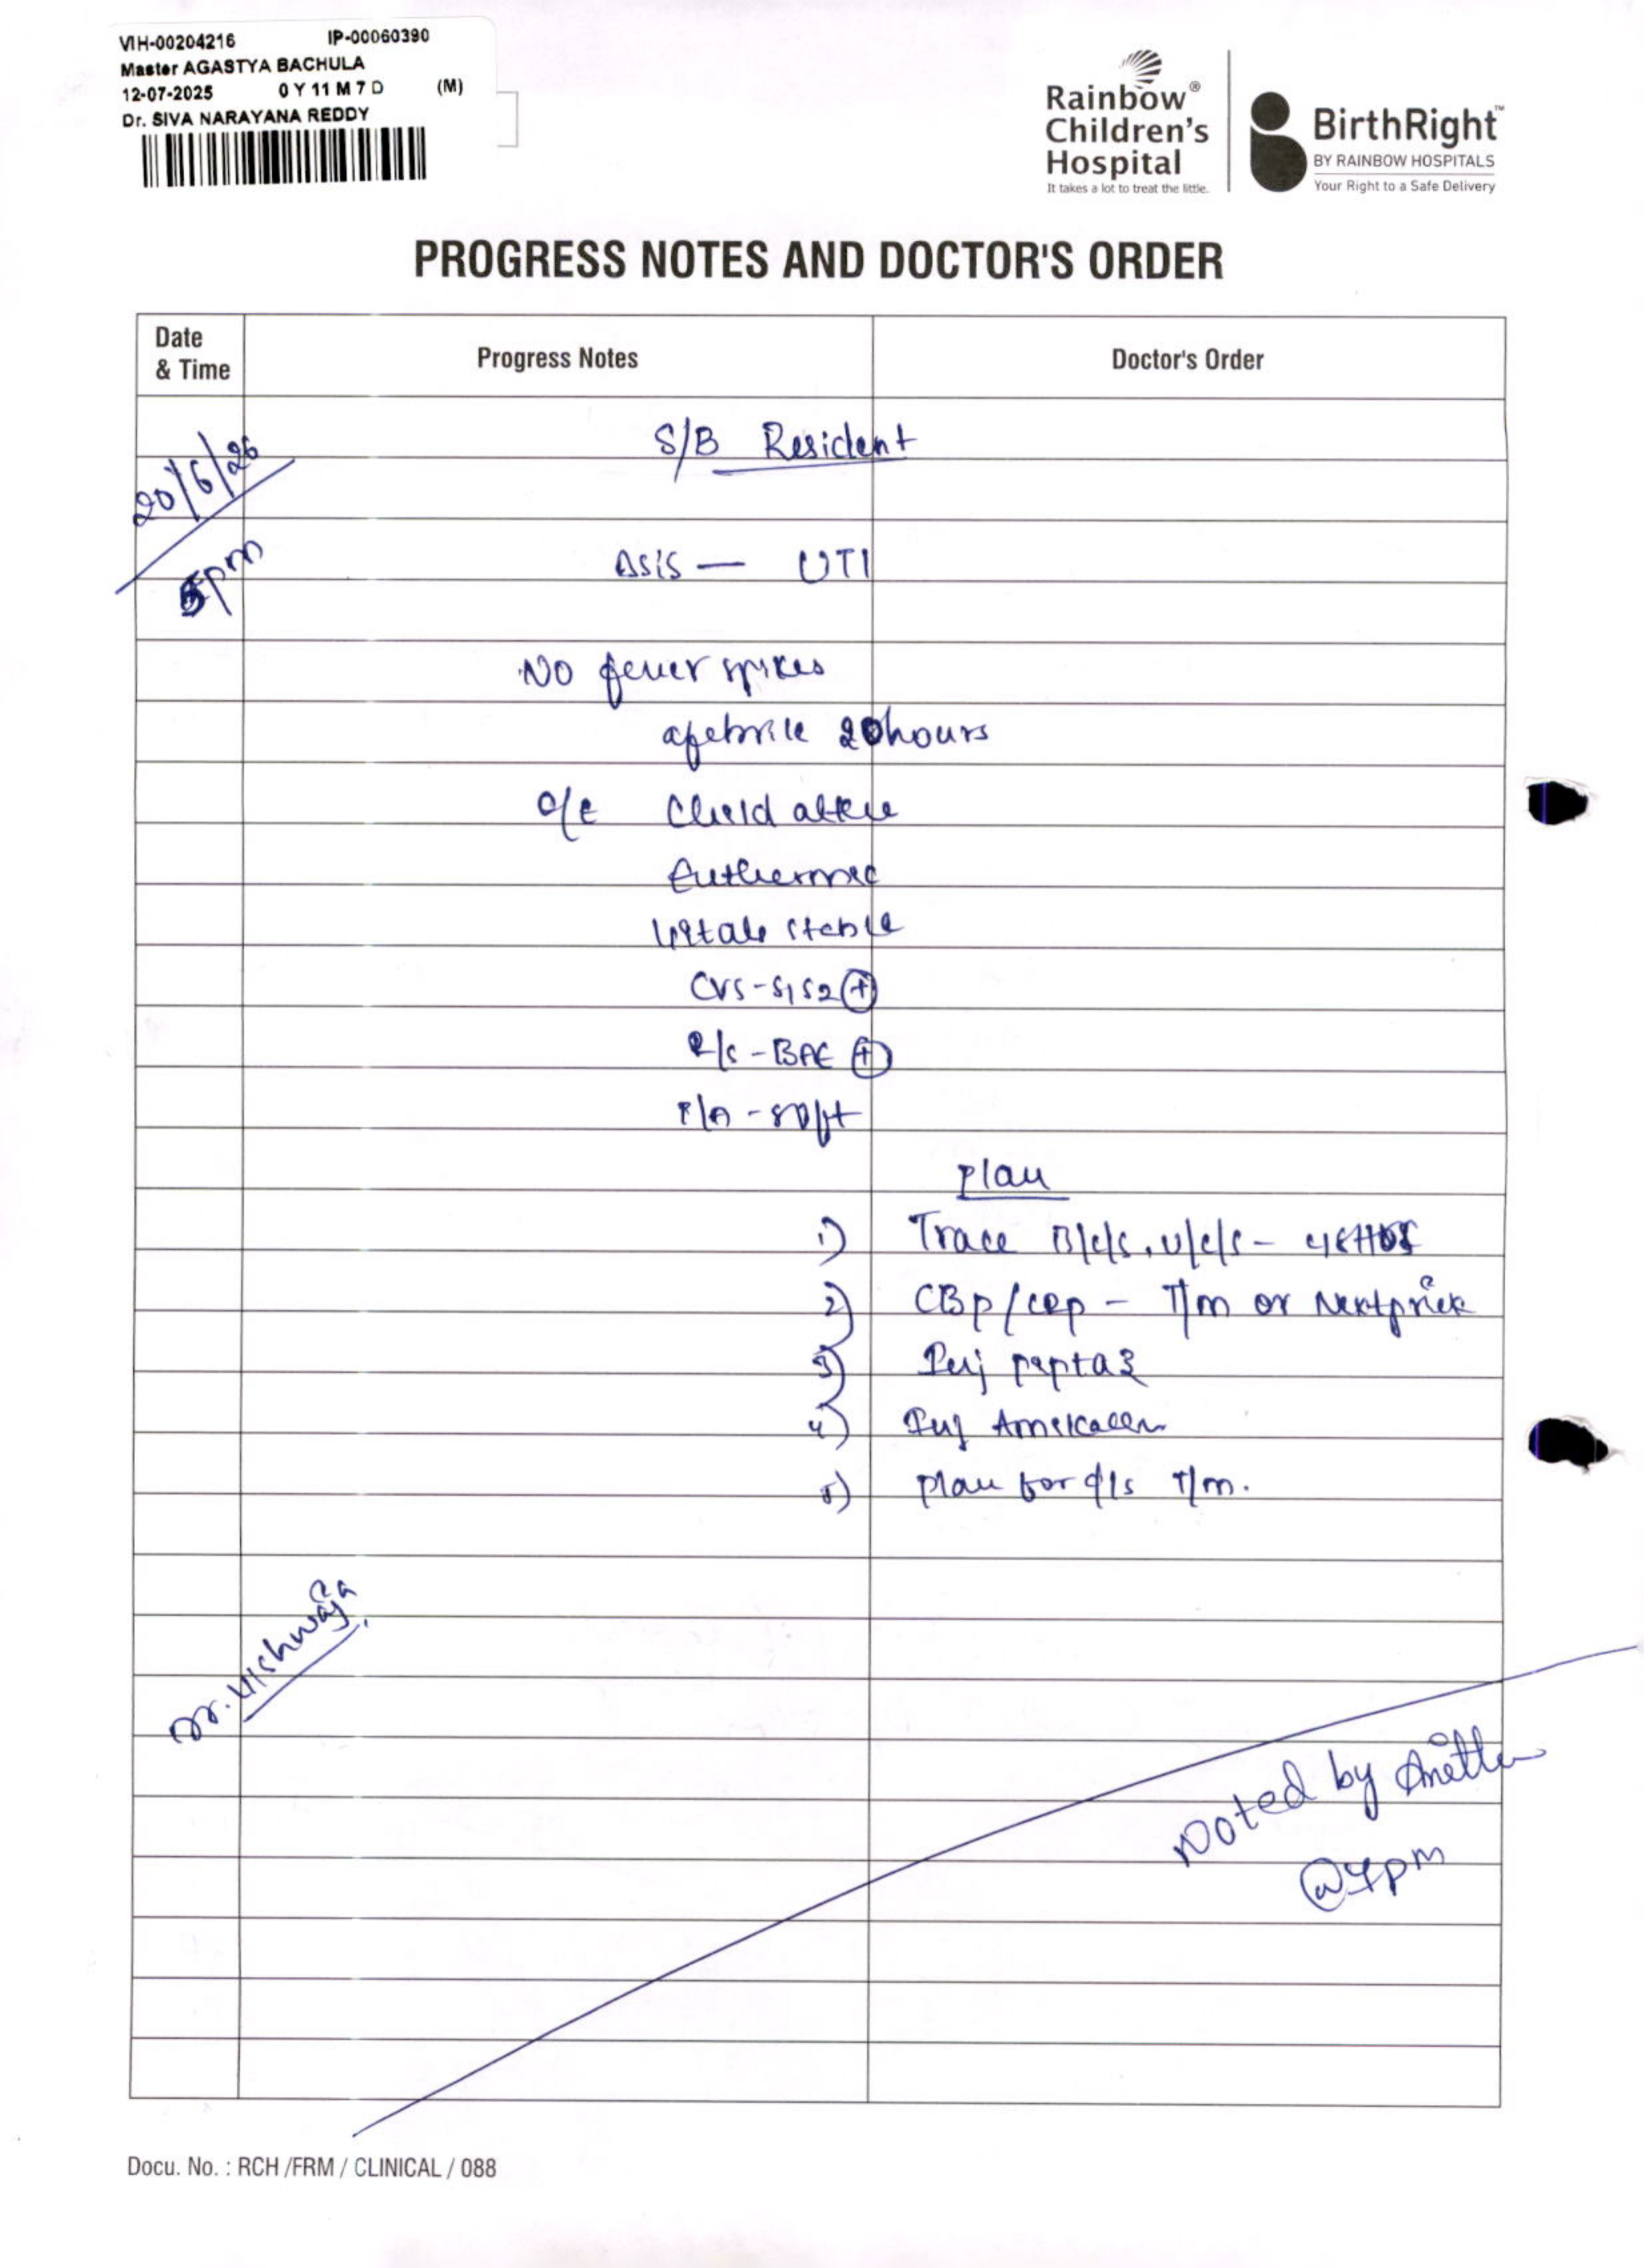 VIH-00204216 IP-00060390
Master AGASTYA BACHULA
12-07-2025 0 Y 11 M 7 D (M)
Dr. SIVA NARAYANA REDDY
Rainbow®
Children's
Hospital
It takes a lot to treat the little.
BirthRight™
BY RAINBOW HOSPITALS
Your Right to a Safe Delivery
PROGRESS NOTES AND DOCTOR'S ORDER
Date & Time Progress Notes Doctor's Order
20/6/26
5pm
S/B Resident
Δsis — UTI
No fever spikes
afebrile 20hours
O/E Child active
Euthermic
Vitals stable
CVS - S1S2 ⊕
R/S - BAE ⊕
P/A - soft
Plan
1) Trace B/c/s, U/c/s -
2) CBP/CRP - T/m or Next prick
3) Inj piptaz
4) Inj Amikacin
5) Plan for d/s T/m.
Dr. Vishwaja
Noted by
@4pm
Docu. No. : RCH /FRM / CLINICAL / 088